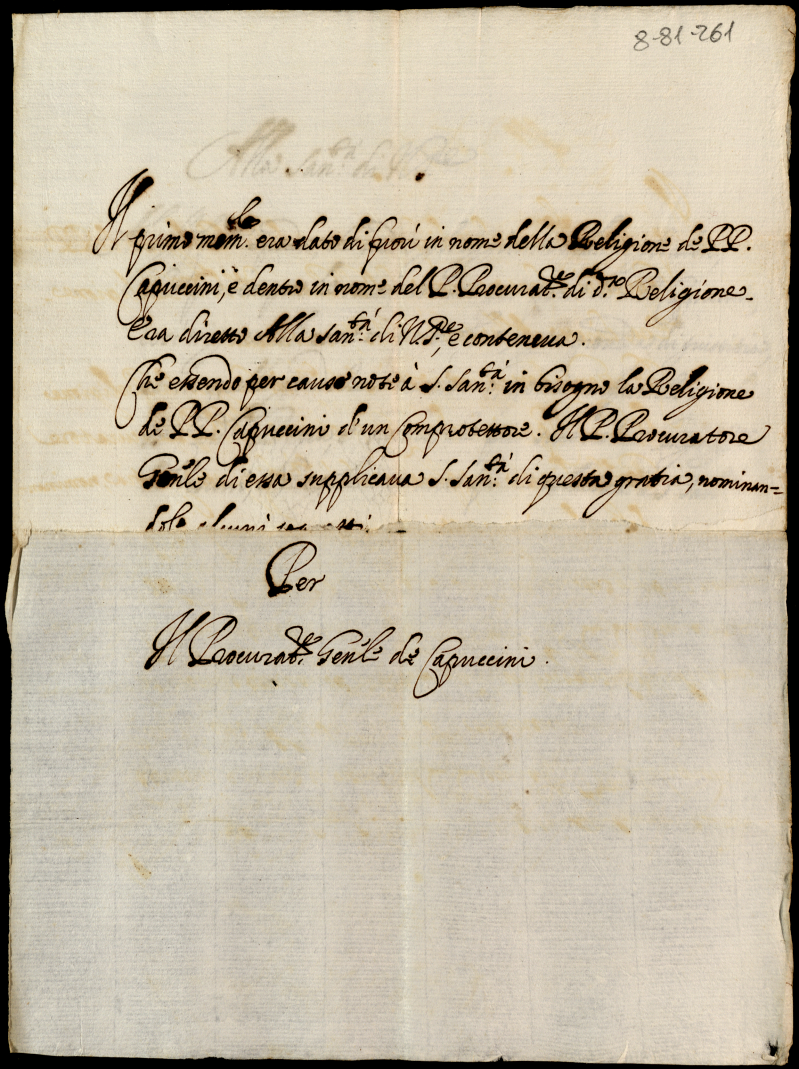 8-81-261
Alla San.tà di N. Sre
Il primo mem.le era dato di fuori in nome della Religione de PP.
Capuccini, è dentro in nome del P. Procurat.re di d.a Religione.
Era diretto Alla San.tà di N. S.re, e conteneva.
Che essendo per cause note à S. San.tà in bisogno la Religione
de PP. Capuccini d'un Comprotettore. Il P. Procuratore
Gen̄le di essa supplicava S. San.tà di questa gratia, nominan=
dole alcuni soggetti.
Per
Il Procurat.re Gen̄le de Capuccini.